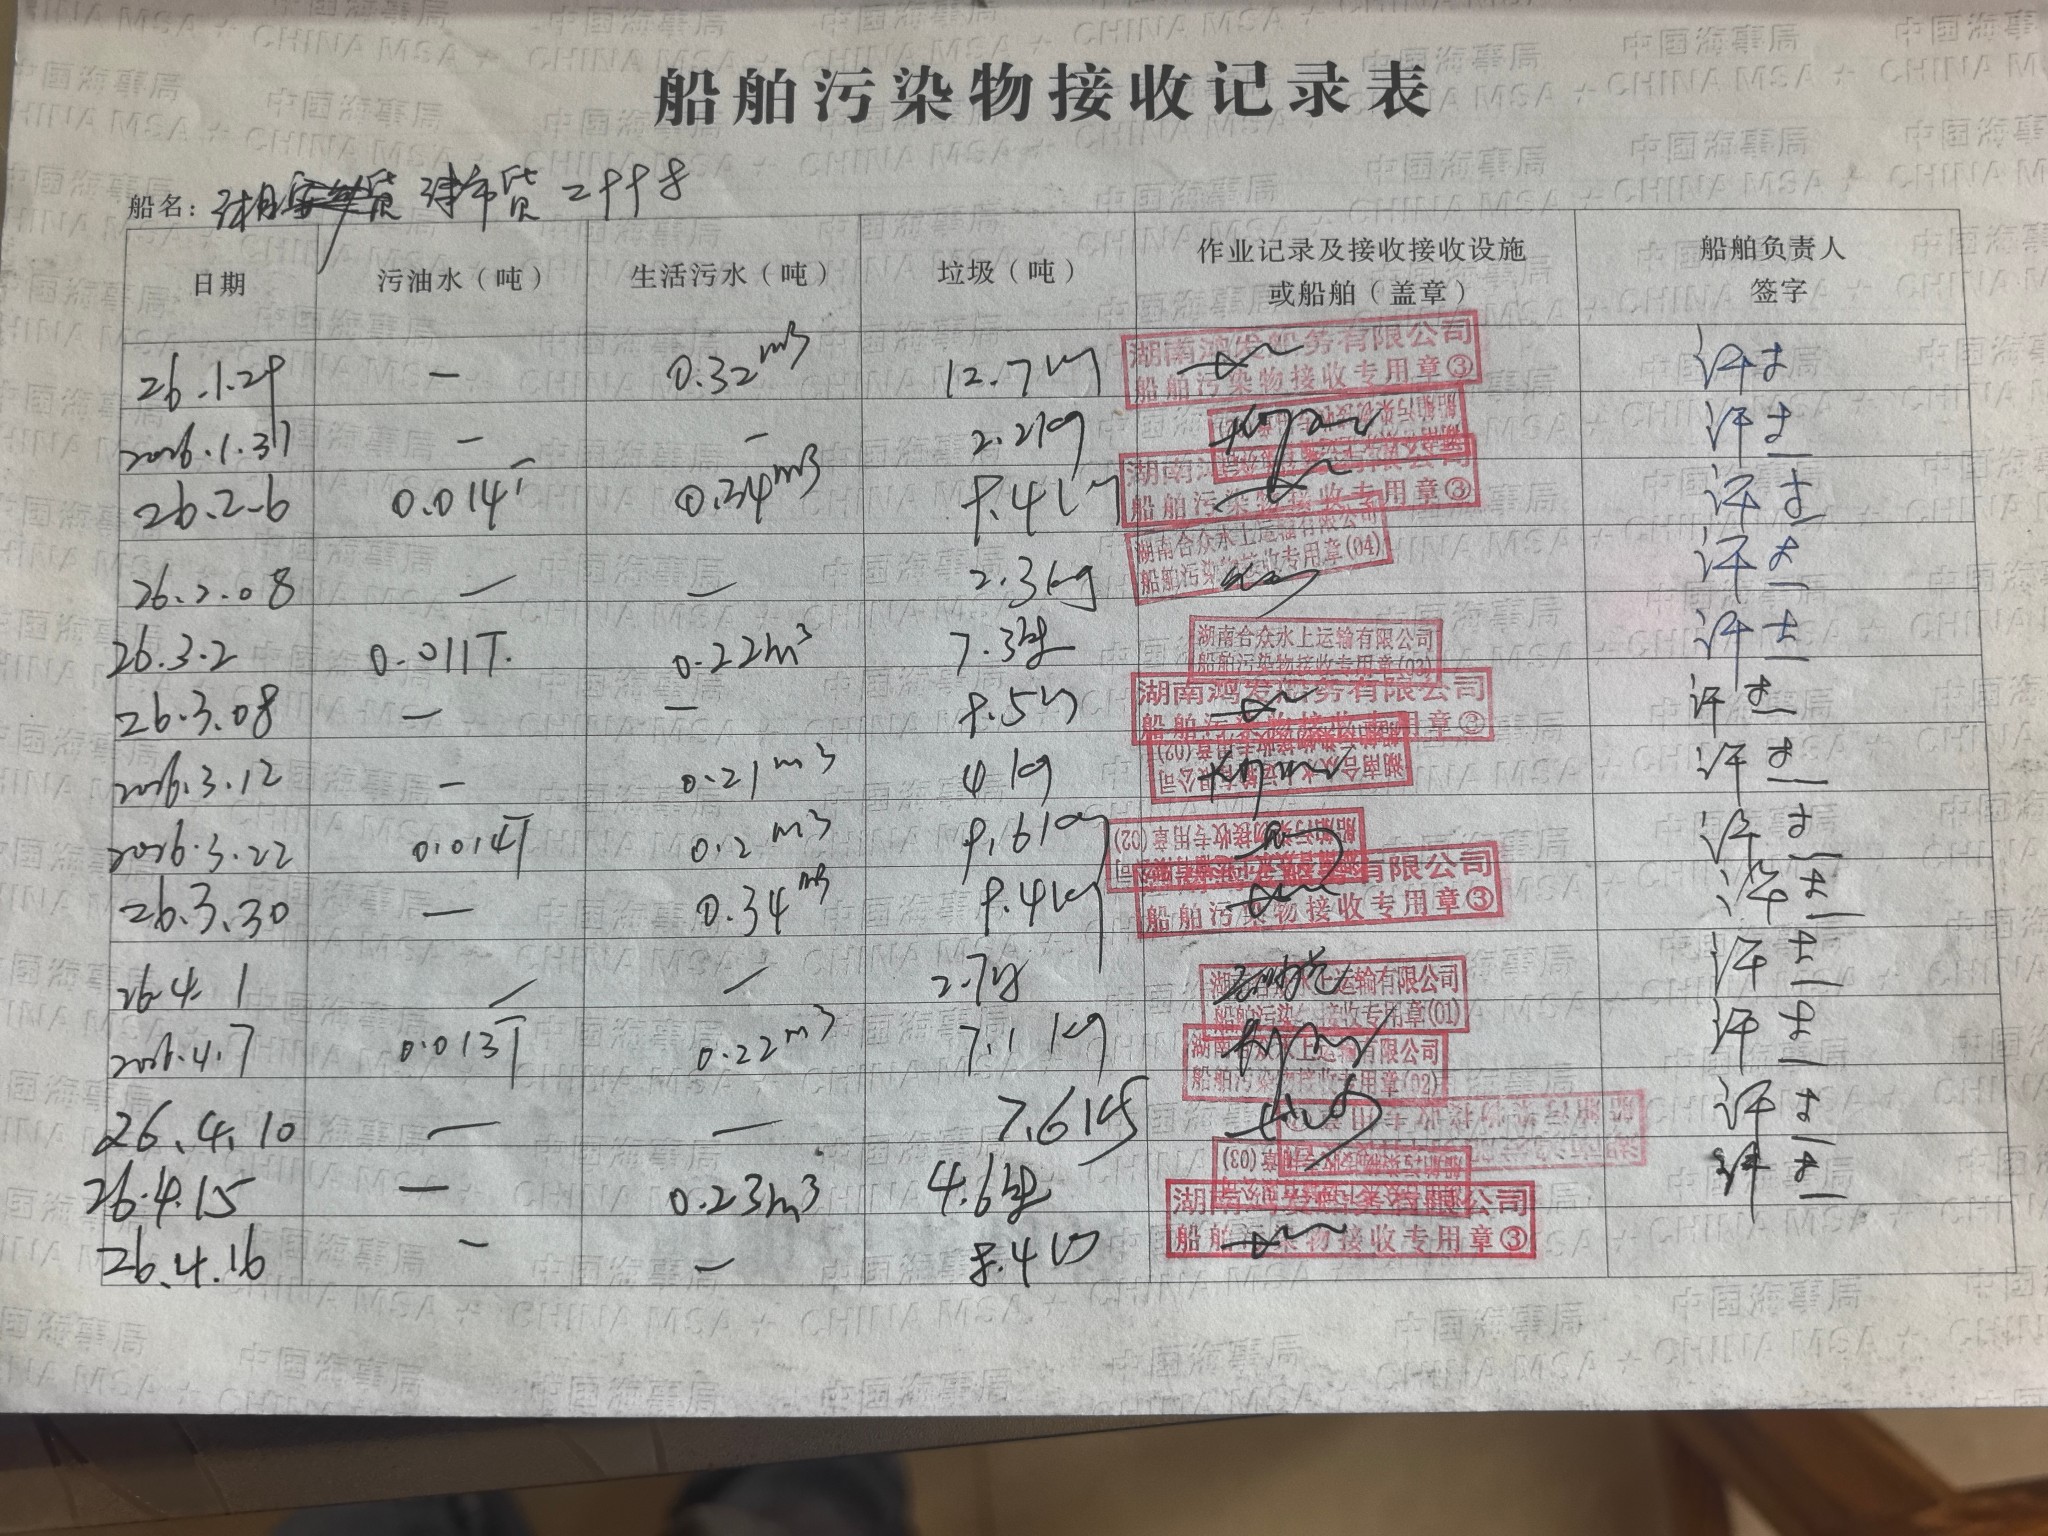 船舶污染物接收记录表
船名： 津市货2998
日期 污油水（吨） 生活污水（吨） 垃圾（吨） 作业记录及接收接收设施或船舶（盖章） 船舶负责人签字
26.1.29 — 0.32m3 12.7kg 湖南鸿发船务有限公司 船舶污染物接收专用章③ 许
2026.1.31 — — 2.2kg 许
26.2-6 0.014T 0.34m3 9.4kg 船舶污染物接收专用章③ 许
26.2.08 — — 2.3kg 湖南合众水上运输有限公司 船舶污染物接收专用章(04) 许
26.3.2 0.011T. 0.22m3 7.3kg 湖南合众水上运输有限公司 船舶污染物接收专用章(03) 许
26.3.08 — — 9.5kg 湖南鸿发船务有限公司 船舶污染物接收专用章③ 许
2026.3.12 — 0.21m3 4kg 湖南合众水上运输有限公司 船舶污染物接收专用章(02) 许
2026.3.22 0.014T 0.2m3 9.6kg 船舶污染物接收专用章(02) 许
26.3.30 — 0.34m3 9.4kg 船舶污染物接收专用章③ 许
26.4.1 — — 2.7kg 湖南合众水上运输有限公司 船舶污染物接收专用章(01) 许
2026.4.7 0.013T 0.22m3 7.1kg 湖南合众水上运输有限公司 船舶污染物接收专用章(02) 许
26.4.10 — — 7.6kg 许
26.4.15 — 0.23m3 4.6kg 许
26.4.16 — — 8.4kg 湖南鸿发船务有限公司 船舶污染物接收专用章③